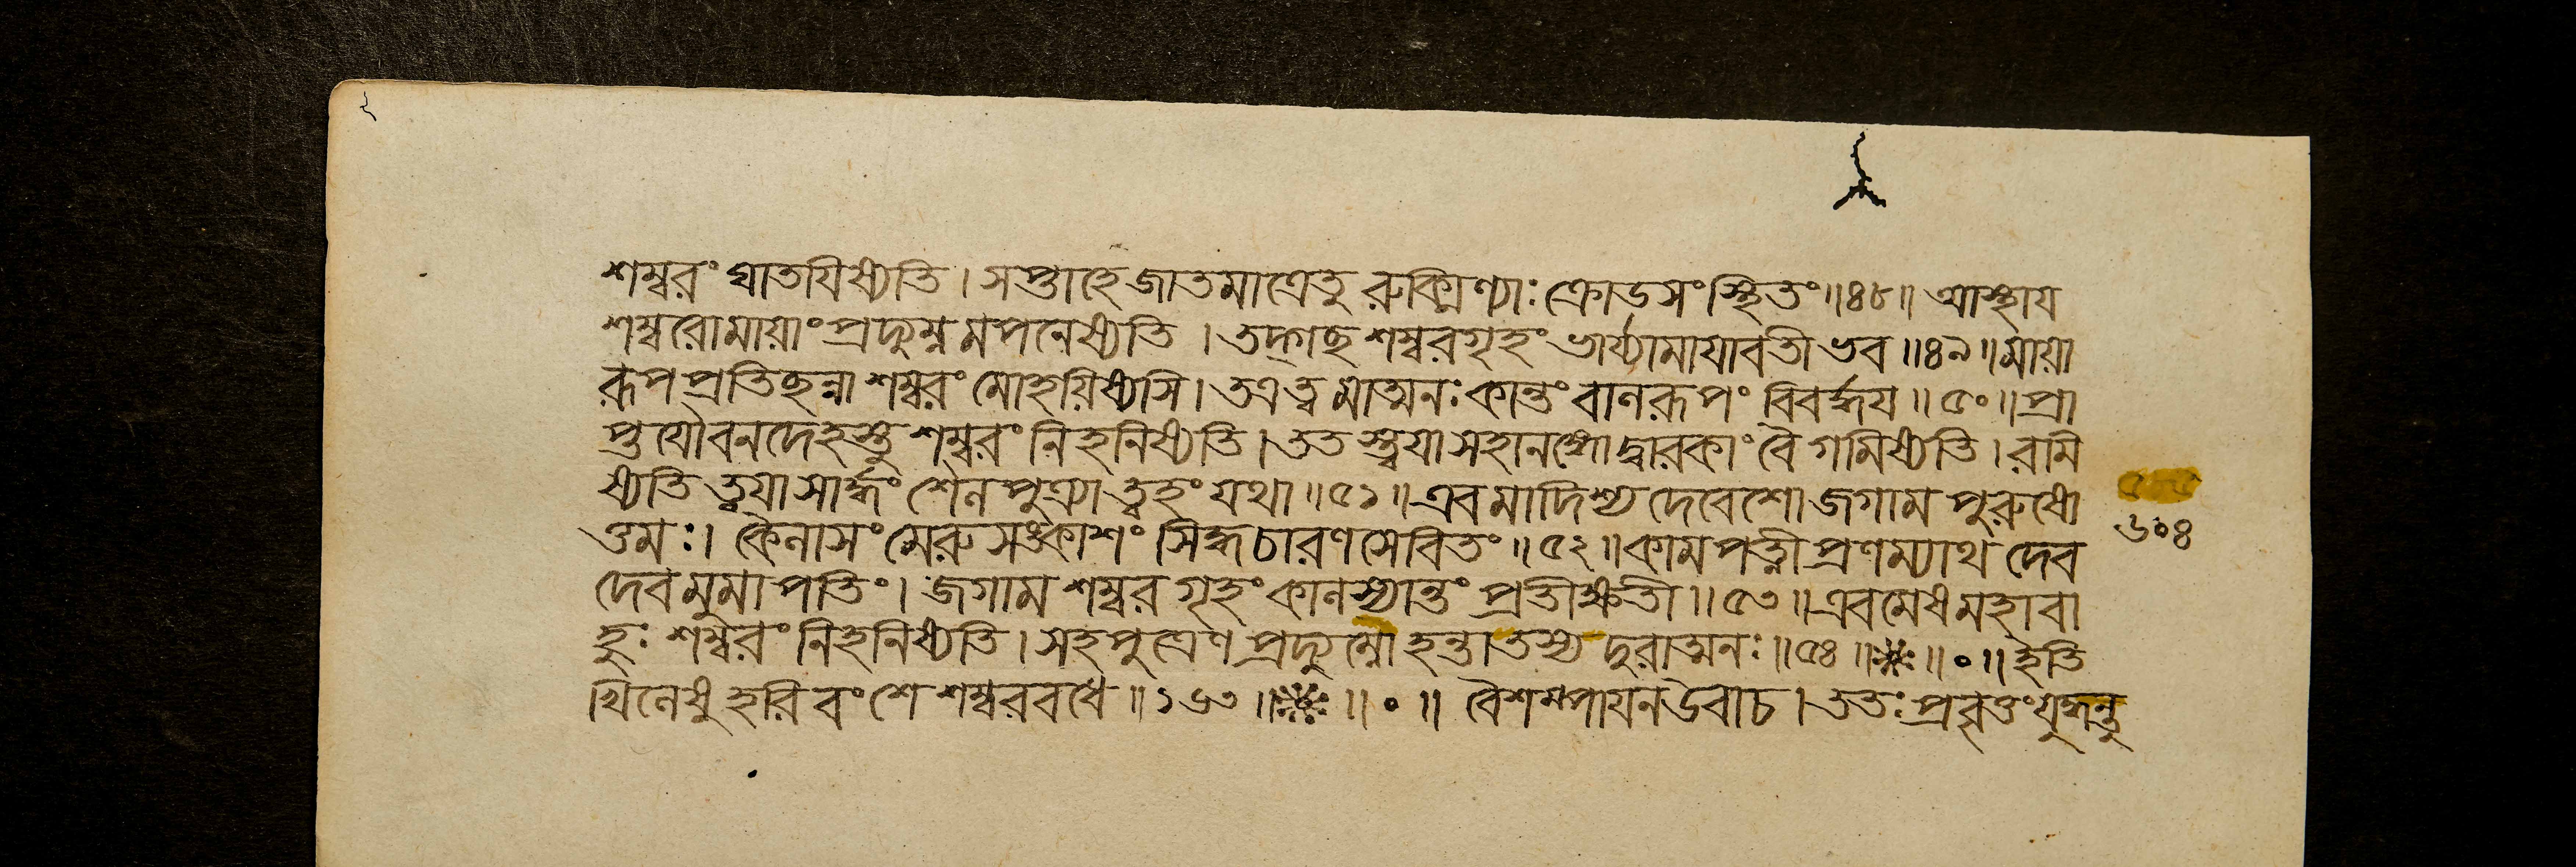 শম্বরং ঘাতযিষ্যতি । সপ্তাহে জাতমাত্রেতু রুক্মিণ্যাঃ ক্রোডসংস্থিতং ॥ ৪৮ ॥ আস্থায
শম্বরোমাযাং প্রদ্যুম্নমপনেষ্যতি । তদ্গচ্ছ শম্বরগৃহং ভার্য্যামাযাবতী ভব ॥ ৪৯ ॥ মাযা
রূপপ্রতিচ্ছন্না শম্বরং মোহযিষ্যসি । তত্র ত্বমাত্মনঃ কান্তং বালরূপং বিবর্দ্ধয ॥ ৫০ ॥ প্রা
প্তযৌবনদেহস্তু শম্বরং নিহনিষ্যতি । ততস্ত্বযা সহানঙ্গো দ্বারকাং বৈ গমিষ্যতি । রমি
ষ্যতি ত্বযা সার্দ্ধং শৈলপুত্র্যা ত্বহং যথা ॥ ৫১ ॥ এবমাদিশ্য দেবেশো জগাম পুরুষো
ত্তমঃ । কৈলাসং মেরুসঙ্কাশং সিদ্ধচারণসেবিতং ॥ ৫২ ॥ কামপত্নী প্রণম্যাথ দেব
৬০৪
দেবমুমাপতিং । জগাম শম্বরগৃহং কালস্যান্তং প্রতীক্ষতী ॥ ৫৩ ॥ এবমেষ মহাবা
হুঃ শম্বরং নিহনিষ্যতি । সহপুত্রেণ প্রদ্যুম্নো হন্তা তস্য দুরাত্মনঃ ॥ ৫৪ ॥ ॥ ০ ॥ ইতি
খিলেষু হরিবংশে শম্বরবধে ॥ ১৬৩ ॥ ॥ ০ ॥ বৈশম্পাযন উবাচ । ততঃ প্রবৃত্তং যুদ্ধন্তু